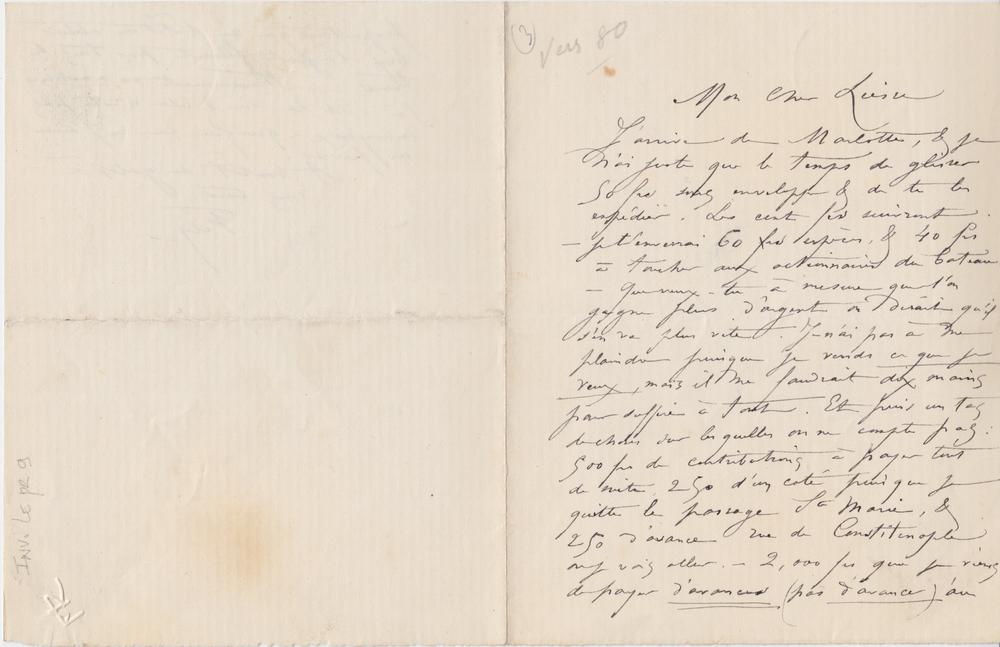 3
Vers 80
Mon Cher Liesse
J'arrive de Marlotte, & je
n'ai juste que le temps de glisser
50 frs sous enveloppe & de te les
expédier. Les cent frs suivront.
— je t'enverrai 60 frs espèces, & 40 frs
à toucher aux actionnaires du bateau
— Que veux-tu à mesure que l'on
gagne plus d'argent on dirait qu'il
s'en va plus vite. Je n'ai pas à me
plaindre puisque je vends ce que je
veux, mais il me faudrait dix mains
pour suffire à tout. Et puis un tas
de choses sur lesquelles on ne compte pas:
500 frs de contributions à payer tout
de suite, 250 d'un coté puisque je
quitte le passage Ste Marie, &
250 d'avance rue de Constantinople
où je vais aller. — 2,000 frs que je viens
de payer d'avances (pas d'avance) au
INV. Le PR 9